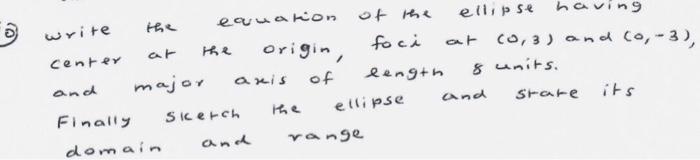 write the equation of the ellipse having
center at the origin, foci at (0,3) and (0,-3),
and major axis of length 8 units.
Finally sketch the ellipse and state its
domain and range